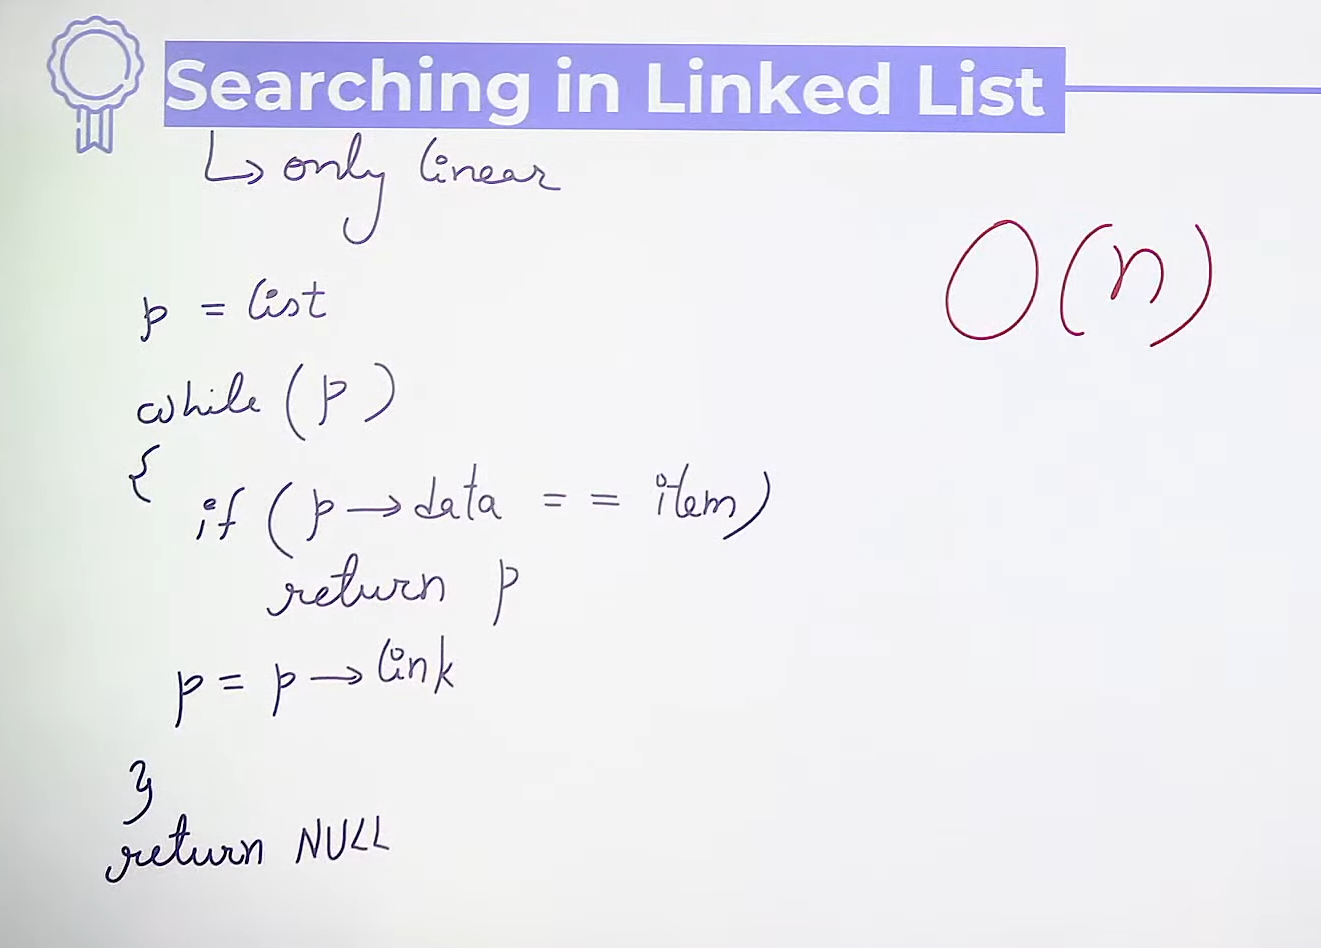 Searching in Linked List
↳ only linear
O(n)
p = list
while (p)
{
if (p → data == item)
return p
p = p → link
}
return NULL